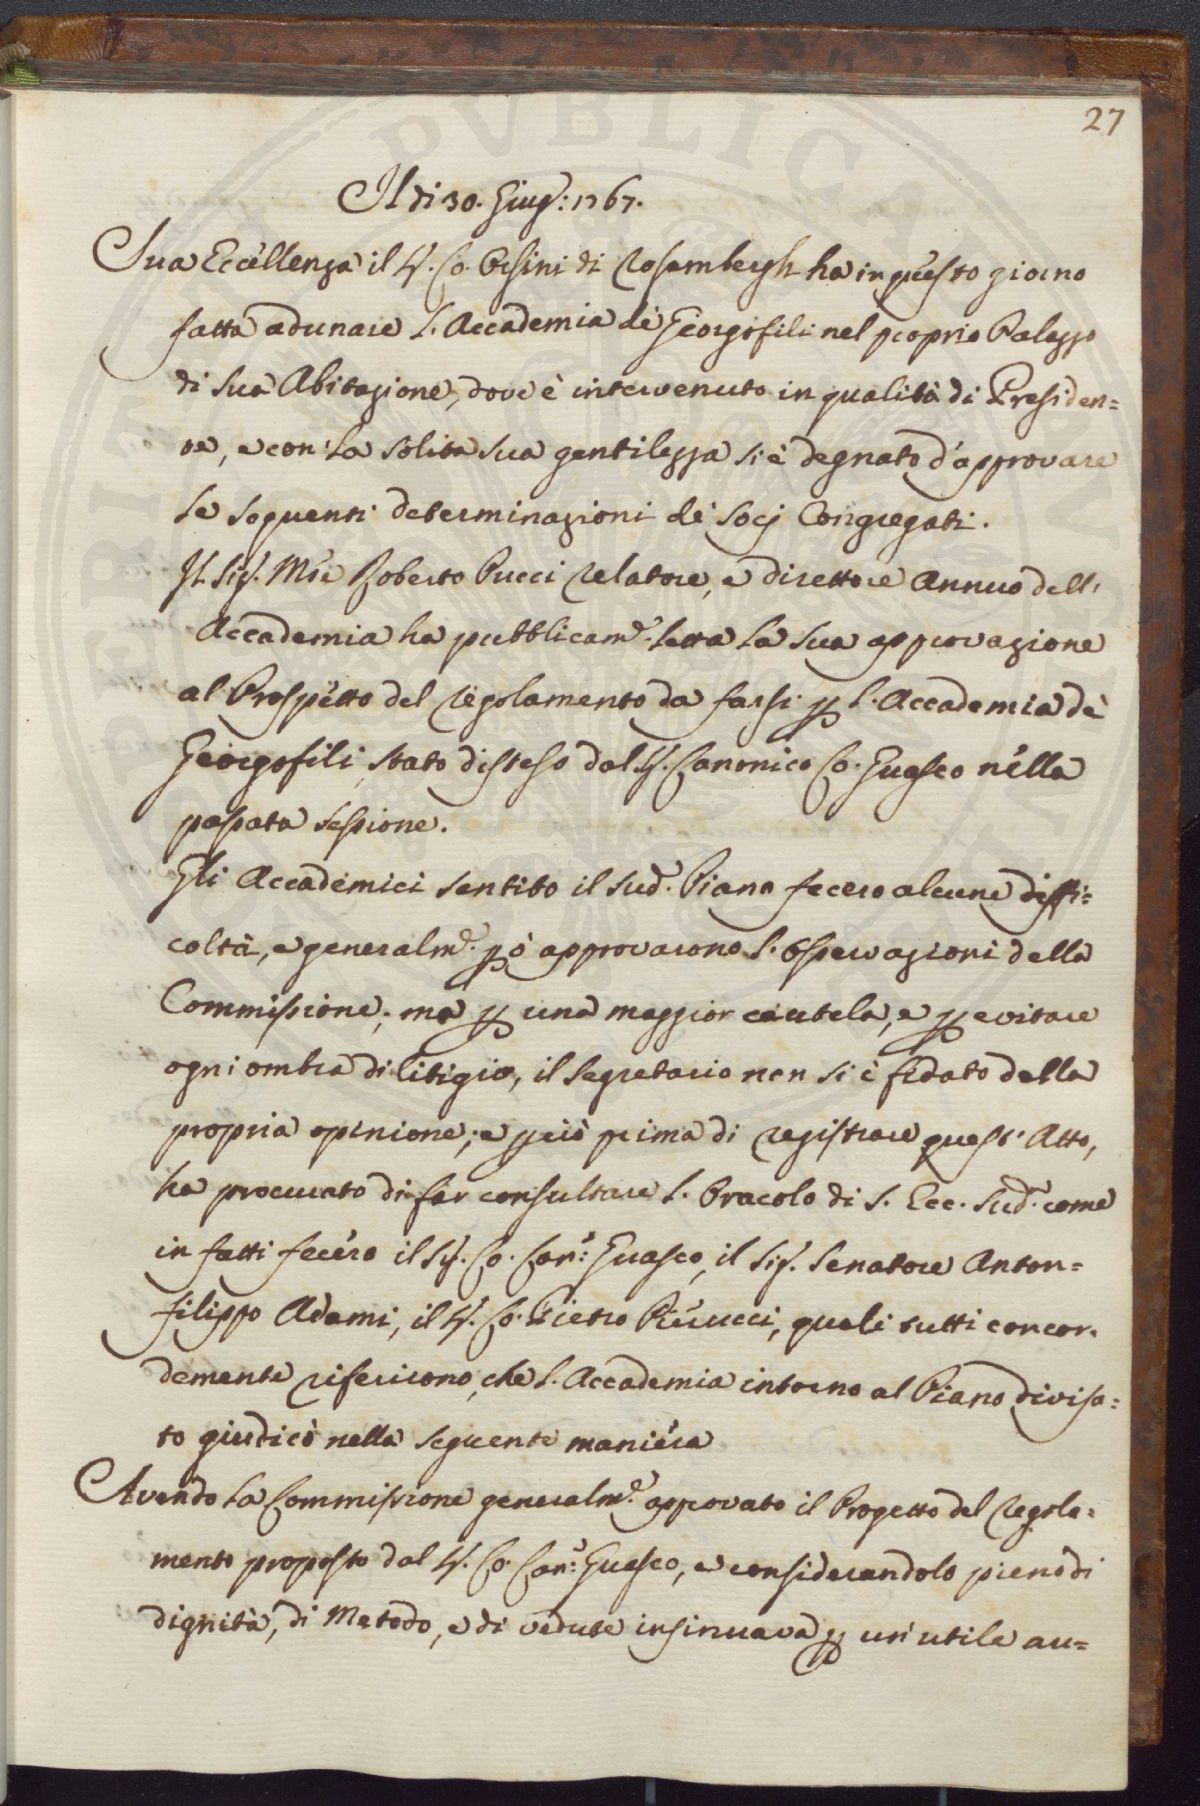 27
Il di 30. Giugº: 1767.
Sua Eccellenza il Sr. Co. Orsini di Rosembergh ha in questo giorno
fatta adunare l'Accademia de' Georgofili nel proprio Palazzo
di sua Abitazione, dove è intervenuto in qualità di Presiden=
te, e con la solita sua gentilezza si è degnato d'approvare
le seguenti determinazioni de' Socj Congregati.
Il Sigr. Mse Roberto Pucci Relatore, e direttore Annuo dell'
Accademia ha pubblicamte. letta la sua approvazione
al Prospetto del regolamento da farsi p l'Accademia de'
Georgofili, stato disteso dal Sr. Canonico Co. Guasco nella
passata sessione.
Gli Accademici sentito il sudº. Piano fecero alcune diffi=
coltà, e generalmte. pò approvarono l'osservazioni della
Commissione; ma p una maggior cautela, e p evitare
ogni ombra di litigio, il Segretario non si è fidato della
propria opinione; e pciò prima di registrare quest'Atto,
ha procurato di far consultare l'Oracolo di S. Ecc. sudª. come
in fatti fecero il Sigr. Co. Canº: Guasco, il Sigr. Senatore Anton=
filippo Adami, il Sr. Co. Pietro Piérucci, quali tutti concor=
demente riferirono, che l'Accademia intorno al Piano divisa=
to giudicò nella seguente maniera
Avendo la Commissione generalmte. approvato il Progetto del Regola=
mento proposto dal Sr. Co. Canº: Guasco, e considerandolo pieno di
dignità, di Metodo, e di vedute insinuava p un'utile au=